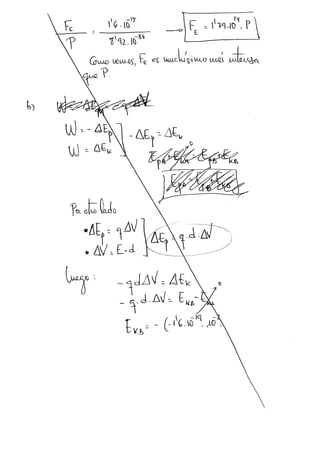 F_E / P = 1'6·10^-15 / 8'92·10^-30 → F_E = 1'79·10^14 · P
Como vemos, F_E es muchísimo más intensa
que P.
b)
W = - ΔE_p
W = ΔE_k
- ΔE_p = ΔE_k
Por otro lado
• ΔE_p = q ΔV
• ΔV = E·d
ΔE_p = q·d·ΔV
Luego:
- q d ΔV = ΔE_k
- q·d·ΔV = E_KB - E_KA 0
E_KB = - (-1'6·10^-19 · 10^-2 ·